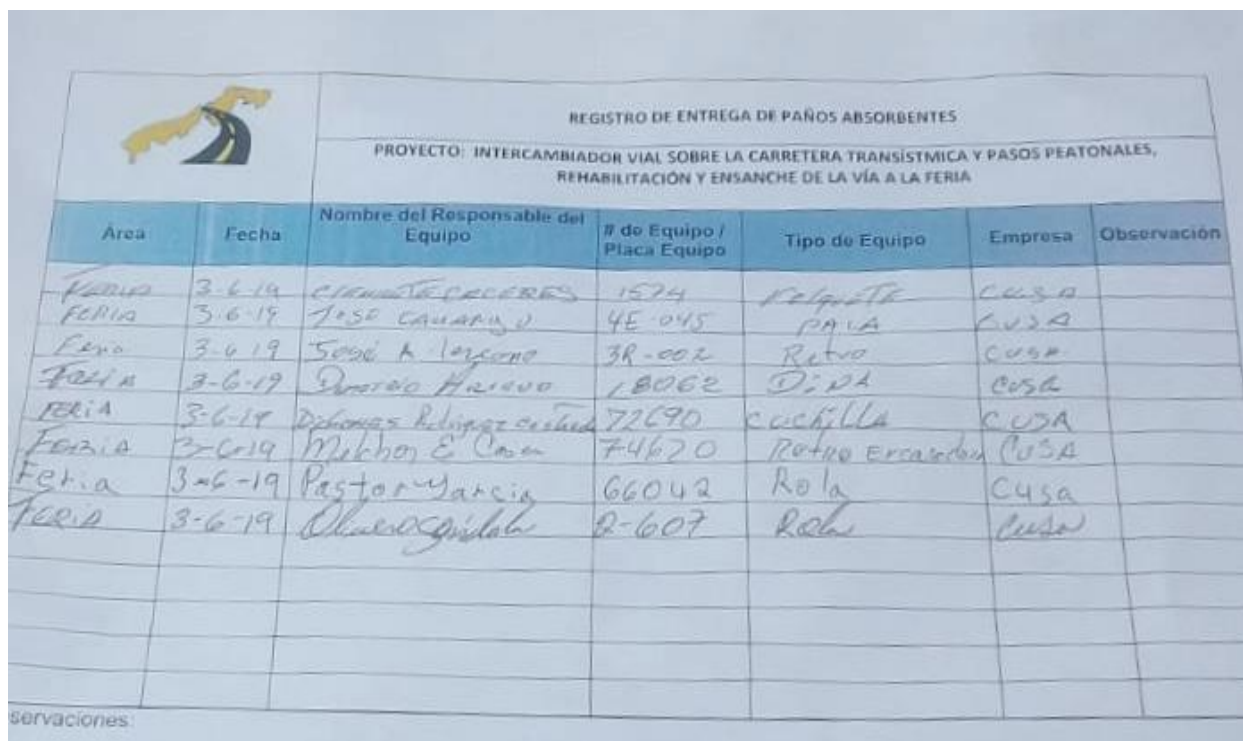 REGISTRO DE ENTREGA DE PAÑOS ABSORBENTES
PROYECTO: INTERCAMBIADOR VIAL SOBRE LA CARRETERA TRANSÍSTMICA Y PASOS PEATONALES,
REHABILITACIÓN Y ENSANCHE DE LA VÍA A LA FERIA
Área Fecha Nombre del Responsable del Equipo # de Equipo / Placa Equipo Tipo de Equipo Empresa Observación
FERIA 3-6-19 CACERES 1574 CUSA
FERIA 3-6-19 JOSE 4E-045 PALA CUSA
Feria 3-6-19 José A 3R-002 Retro CUSA
FERIA 3-6-19 18062 DINA CUSA
FERIA 3-6-19 72690 cuchilla CUSA
FERIA 3-6-19 Melchor E 74620 Retro CUSA
Feria 3-6-19 Pastor Garcia 66042 Rola Cusa
FERIA 3-6-19 R-607 Rola Cusa
servaciones: